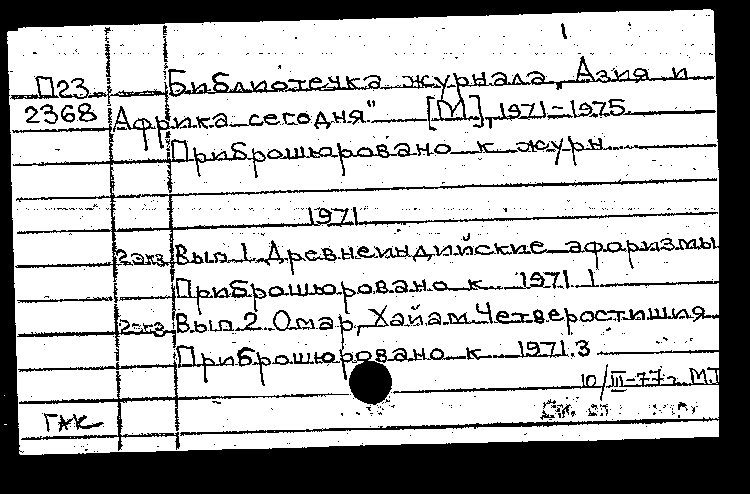 1
П23 Библиотечка журнала „Азия и
2368 Африка сегодня" [М], 1971-1975.
Приброшюровано к журн
1971
2экз Вып 1 Древнеиндийские афоризмы
Приброшюровано к 1971.1
2экз Вып.2 Омар, Хайам. Четверостишия
Приброшюровано к 1971.3
10/III-77г. М.Т
ГАК См. об